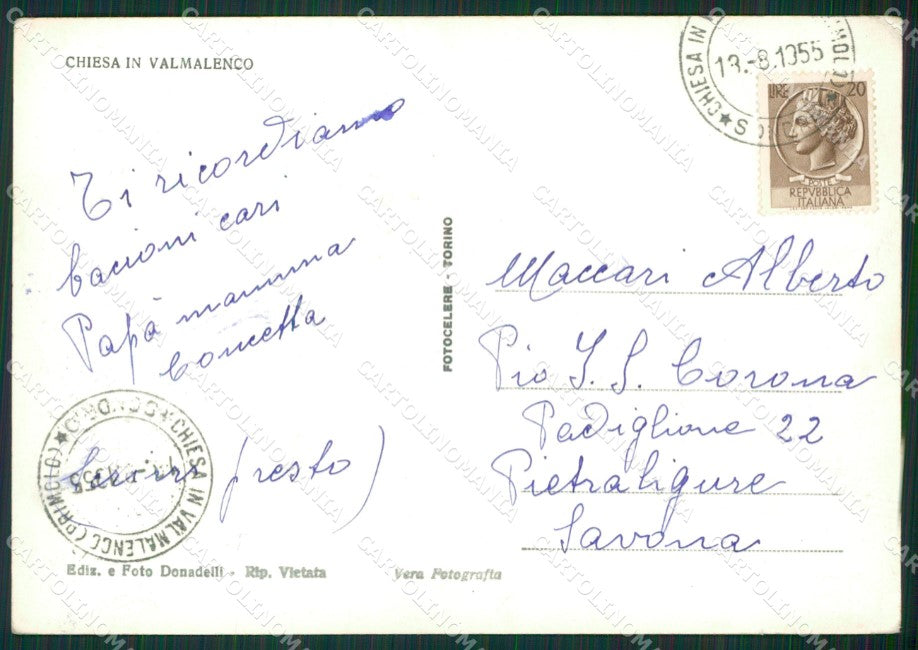 CHIESA IN VALMALENCO
Ti ricordiamo
bacioni cari
Papà mamma
Concetta
(presto)
CHIESA IN VALMALENCO (PRIMOLO) ★ SONDRIO ★
Ediz. e Foto Donadelli - Rip. Vietata
Vera Fotografia
FOTOCELERE - TORINO
CHIESA IN
13.-8.1955
LIRE 20
POSTE
REPVBBLICA
ITALIANA
Maccari Alberto
Pio I. S. Corona
Padiglione 22
Pietraligure
Savona
CARTOLINOMANIA